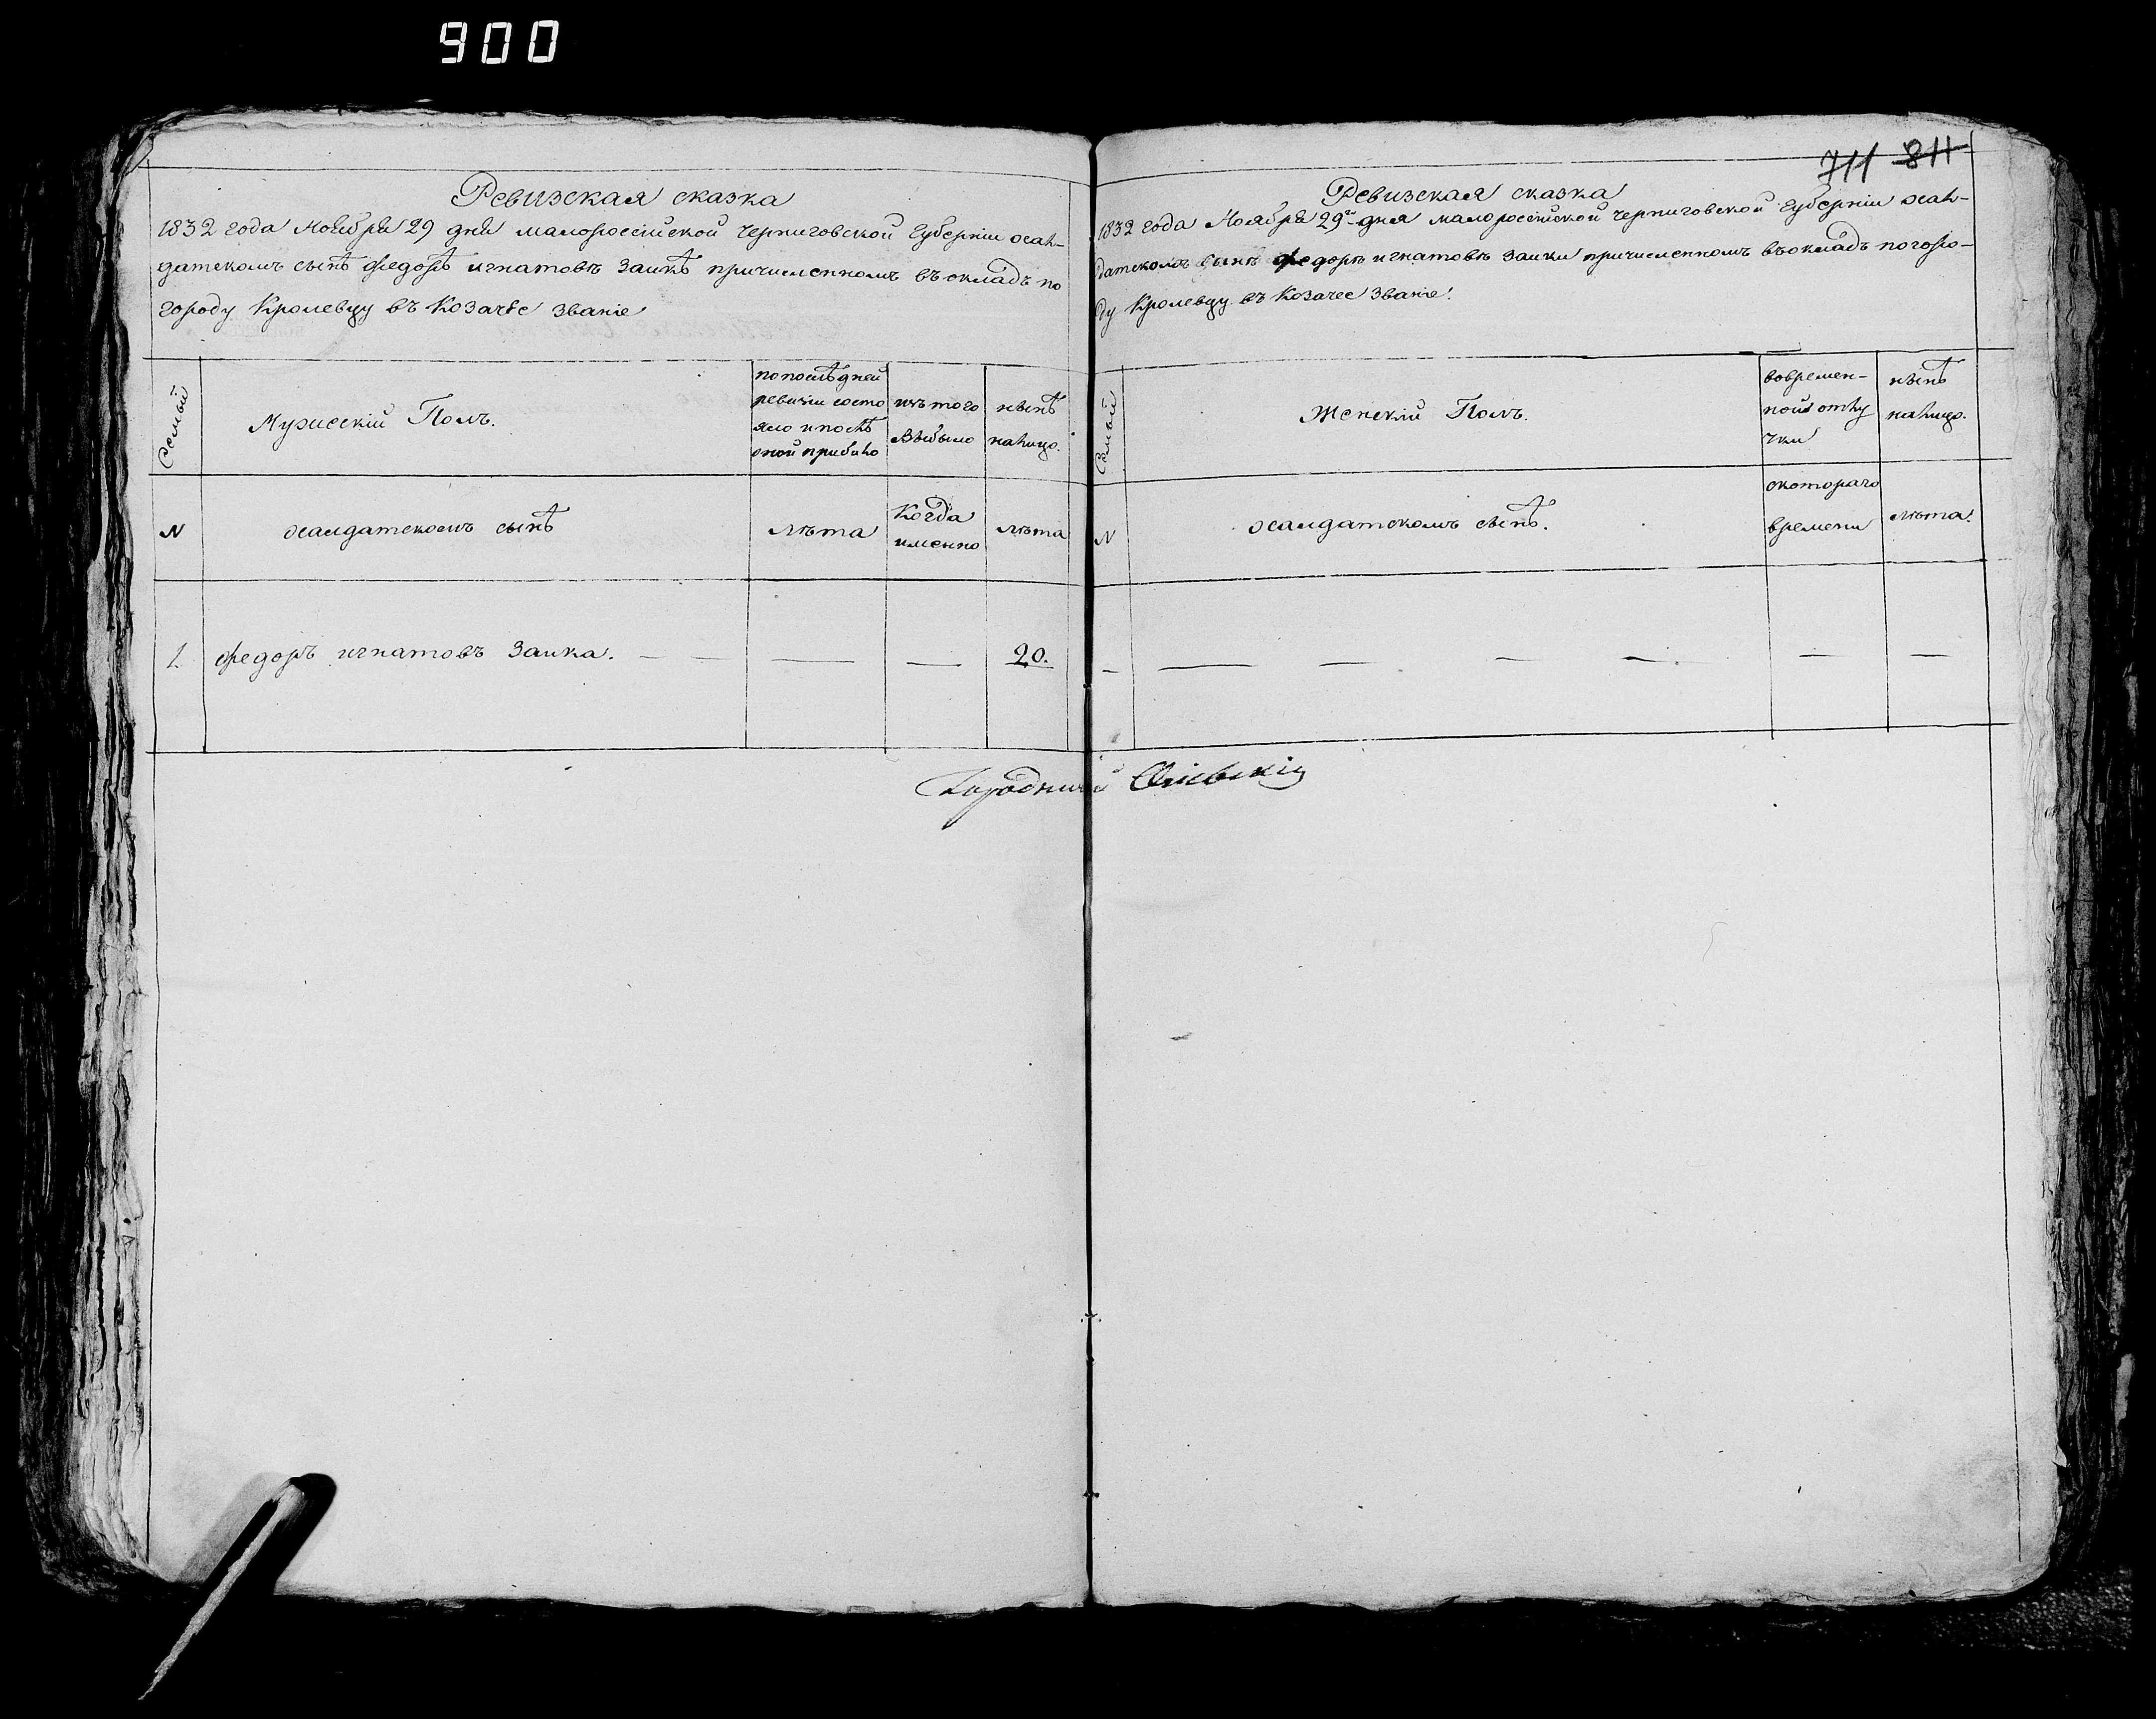 900
711 811
Ревизская сказка
1832 года Ноября 29 дня малороссійской Черниговской Губерніи осал-
датскомъ сынѣ Федорѣ игнатовѣ Заикѣ причисленномъ въ окладъ по
городу Кролевцу въ Козачее Званіе
Семьи
Мужескій Полъ.
попослѣдней
ревизіи состо
яло и послѣ
оной прибыло
изъ того
Выбыло
нынѣ
налицо.
N
осалдатскомъ сынѣ
лѣта
Когда
именно
лѣта
1.
Федоръ игнатовъ Заика.
20.
Ревизская сказка
1832 года Ноября 29го дня малороссійской Черниговской Губерніи осал-
датскомъ сынѣ Федорѣ игнатовѣ Заики причисленномъ въ окладъ по горо-
ду Кролевцу въ Козачее Званіе.
Семьи
Женскій Полъ.
вовремен-
ной отлу
чки
нынѣ
налицо.
N
осалдатскомъ сынѣ.
скотораго
времени
лѣта.
Городничій